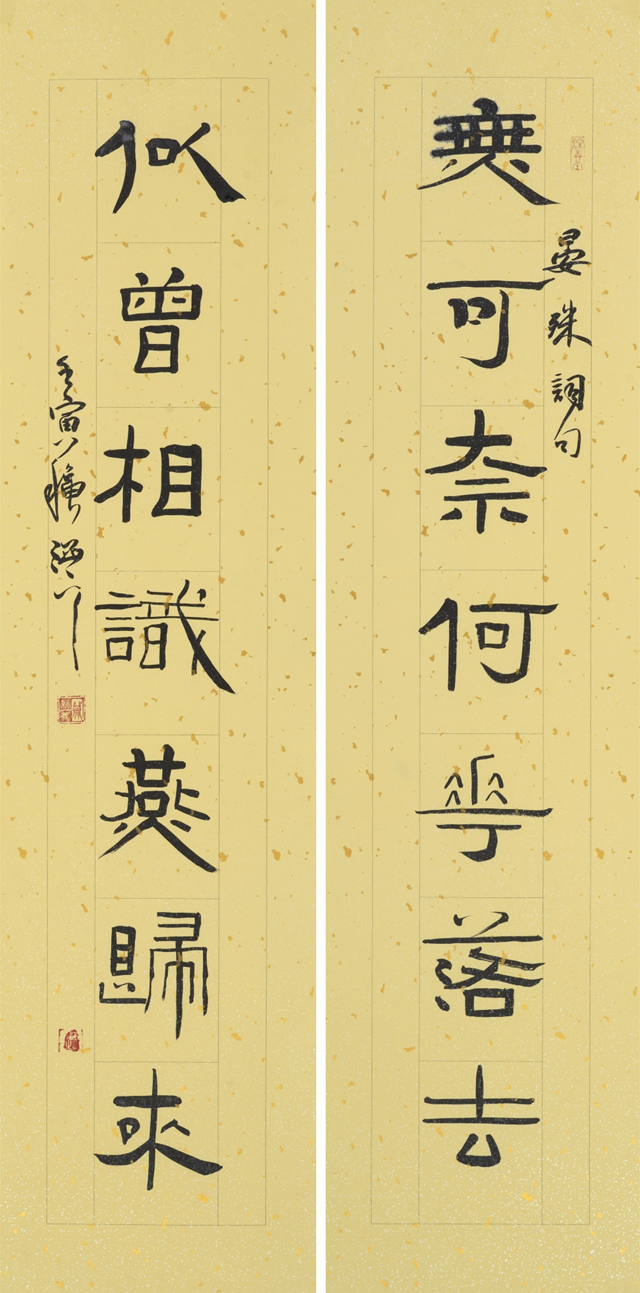 無可奈何華落去
晏殊詞句
似曾相識燕歸來
壬寅